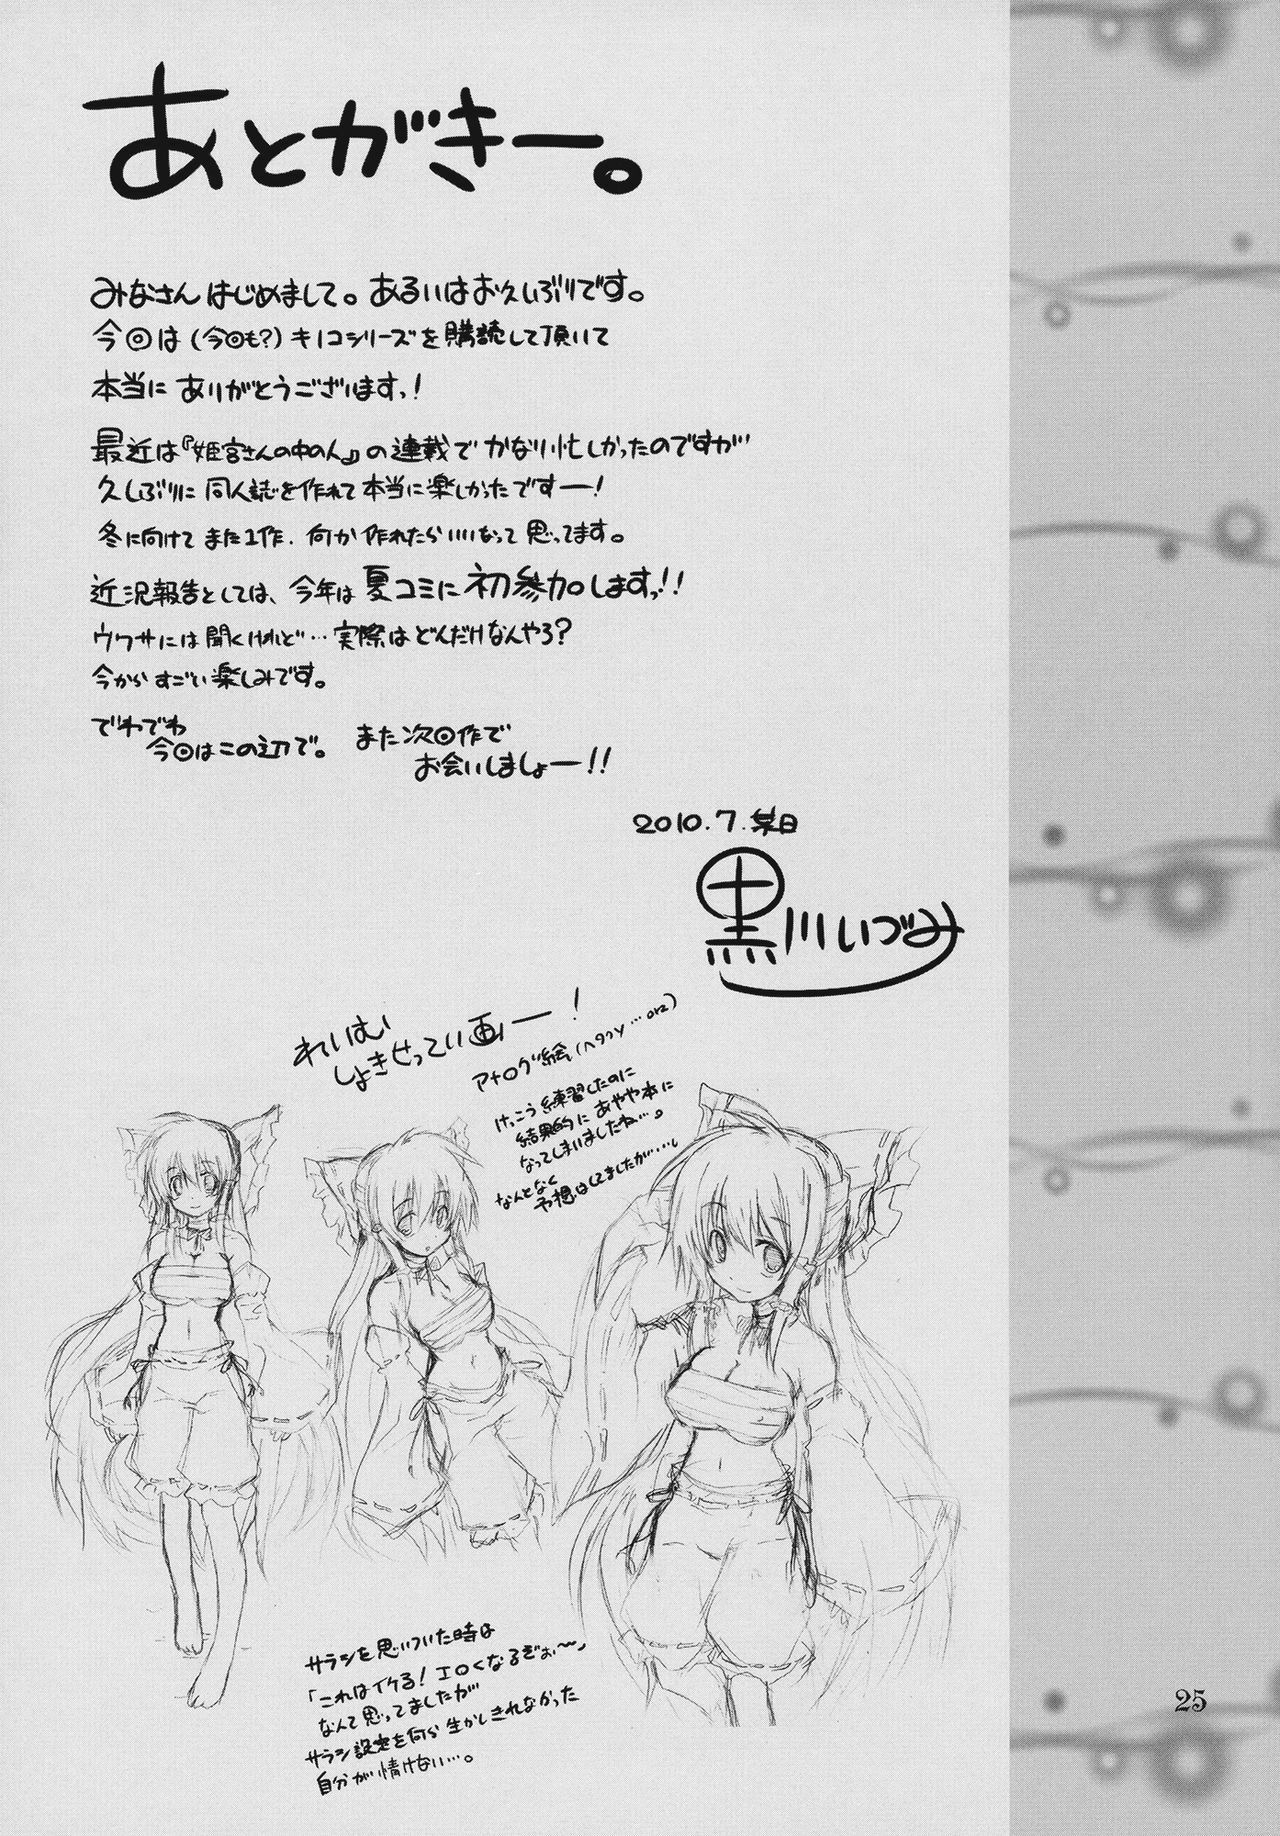 あとがきー。
みなさん はじめまして。あるいはお久しぶりです。
今回は(今回も?)キノコシリーズを購読して頂いて
本当に ありがとうございますっ!
最近は『姫宮さんの中の人』の連載で かなり忙しかったのですが…
久しぶりに 同人誌を作れて 本当に楽しかったですー!
冬に向けて また1作、何か作れたらいいなって 思ってます。
近況報告としては、今年は夏コミに初参加しますっ!!
ウワサには聞くけれど…実際はどんだけなんやろ?
今から すごい楽しみです。
でわでわ
今回はこの辺で。
また次回作で
お会いしましょー!!
2010.7.某日
黒川いづみ
れいむ
しょきせってい画ー!
アナログ絵(ヘタクソ…orz)
けっこう練習したのに
結果的に あやや本に
なってしまいましたね…。
なんとなく
予想はしてましたが……し
サラシを思いついた時は
「これはイケる!エロくなるぞぉ〜」
なんて思ってましたが
サラシ設定を何ら生かしきれなかった
自分が情けない…。
25